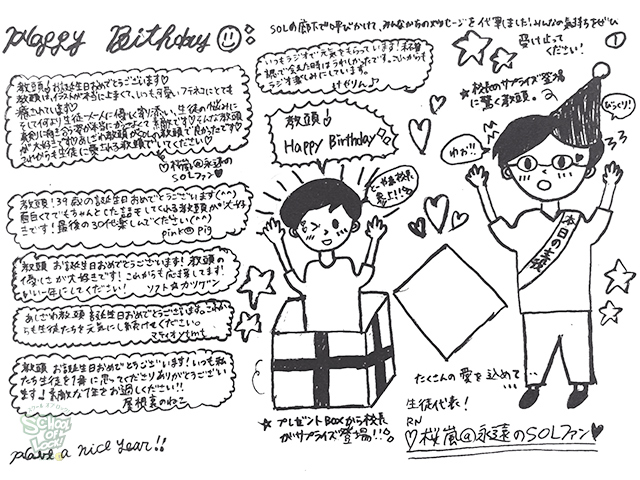 Happy Birthday
SOLの廊下で呼びかけて、みんなからのメッセージを代筆しました!みんなの気持ちをぜひ
受け止って
ください!
①
教頭♡お誕生日おめでとうございます♡
教頭はイラストが本当に上手くて、いつも可愛いフデネコにとても
癒されています♡
そして何より生徒一人一人に優しく寄り添い、生徒の悩みに
真剣に向き合う姿が本当にカッコよくて素敵です♡そんな教頭
が大好きです♡あしざわ教頭がSOLの教頭で良かったです♡
これからも生徒に愛される教頭でいてください♡
♡桜嵐@永遠の
SOLファン♡
いつもラジオで元気をもらっています!
ラジオ楽しみにしています。
けぜりん♪
教頭!39歳の誕生日おめでとうございます(^^)
面白くてでもちゃんとした話もしてくれる教頭が大好
きです!最後の30代楽しんでください(^^)
pink@pig
教頭 お誕生日おめでとうございます!教頭の
優しさが大好きです!これからも応援してます!
いい一年にしてください!
ソフト☆カツゲン
あしざわ教頭 お誕生日おめでとうございます。これか
らも生徒たちを元気にし続けてください。
教頭 お誕生日おめでとうございます!いつも私
たち生徒を1番に思ってくださりありがとうござい
ます♪素敵な1年をお過しください!!
屋根裏のねこ
Have a nice year!!
SCHOOL OF LOCK!
教頭!
Happy Birthday
★プレゼントBOXから校長
がサプライズ登場!!
★校長のサプライズ登場
に驚く教頭。
びっくり!
わぉ!!
本日の主役
たくさんの愛を込めて・・・
生徒代表!
RN
♡桜嵐@永遠のSOLファン♥